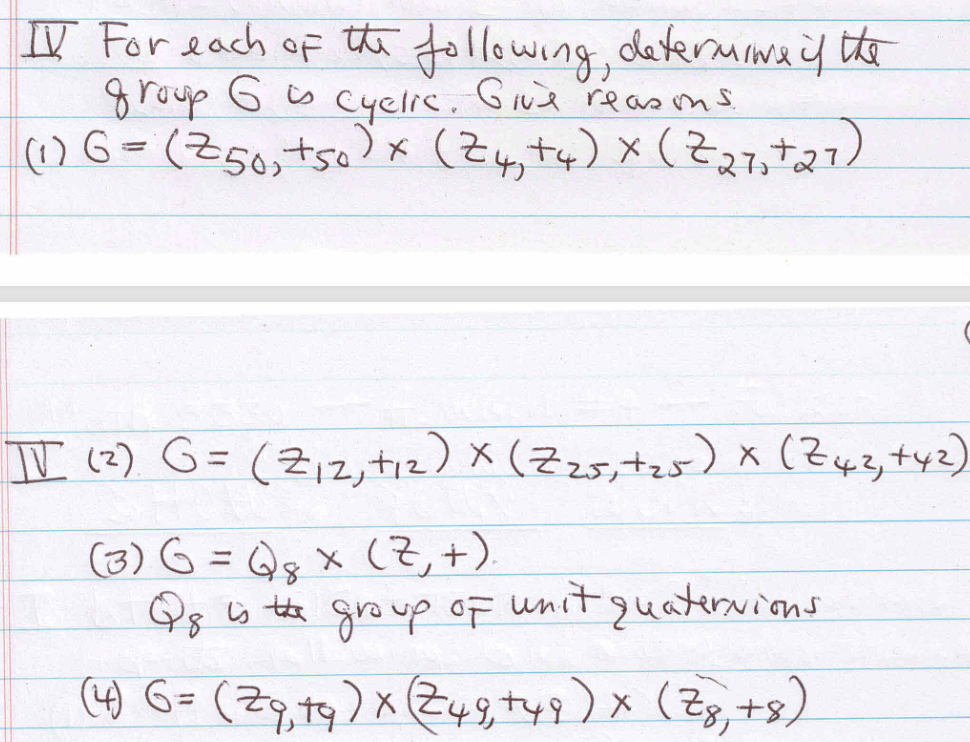 IV For each of the following, determine if the
group G is cyclic. Give reasons.
(1) G = (Z₅₀, +₅₀) × (Z₄, +₄) × (Z₂₇, +₂₇)
IV (2) G = (Z₁₂, +₁₂) × (Z₂₅, +₂₅) × (Z₄₂, +₄₂)
(3) G = Q₈ × (Z, +).
Q₈ is the group of unit quaternions
(4) G = (Z₉, +₉) × (Z₄₉, +₄₉) × (Z₈, +₈)